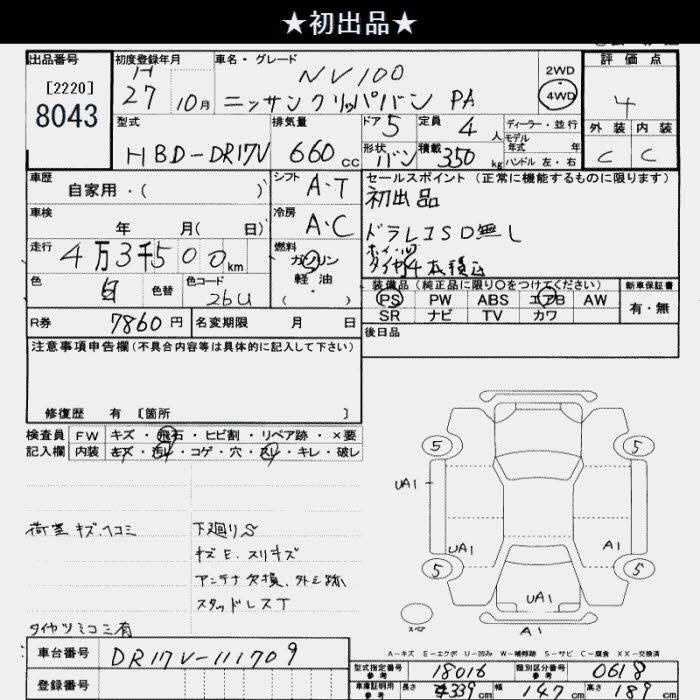 ★初出品★
出品番号
[2220]
8043
初度登録年月
H
27 10月
車名・グレード
NV100
ニッサンクリッパバン PA
2WD
4WD
評価点
4
外装 内装
C C
型式
HBD-DR17V
排気量
660cc
ドア 5
定員 4人
形状 バン
積載 350kg
ディーラー・並行
モデル
年式 年
ハンドル 左・右
車歴
自家用・( )
シフト
A・T
セールスポイント(正常に機能するものに限ります)
初出品
ドラレコSD無し
ホイール
タイヤ4本積込
車検
年 月( 日)
冷房
A・C
走行
4万3千500km
燃料
ガソリン
軽油
( ・ )
色
白
色替
色コード
26U
装備品(純正品に限り○をつけてください)
PS PW ABS エアB AW
SR ナビ TV カワ
新車保証書
有・無
R券 7860円
名変期限 月 日
後日品
注意事項申告欄(不具合内容等は具体的に記入して下さい)
修復歴 有 [箇所 ]
検査員
記入欄
FW キズ・飛石・ヒビ割・リペア跡・×要
内装 キズ・汚レ・コゲ・穴・スレ・キレ・破レ
荷室 キズ、ヘコミ
下廻りS
キズE、スリキズ
アンテナ欠損、外ミ跡
スタッドレスT
タイヤツミコミ有
5
5
UA1
UA1
A1
5
5
UA1
A1
スペア
A-キズ E-エクボ U-凹み W-補修跡 S-サビ C-腐食 XX-交換済
車台番号
DR17V-111709
登録番号
型式指定番号
参考
18016
類別区分番号
参考
0618
車庫証明用
参考
長さ 339cm
幅 147cm
高さ 189cm